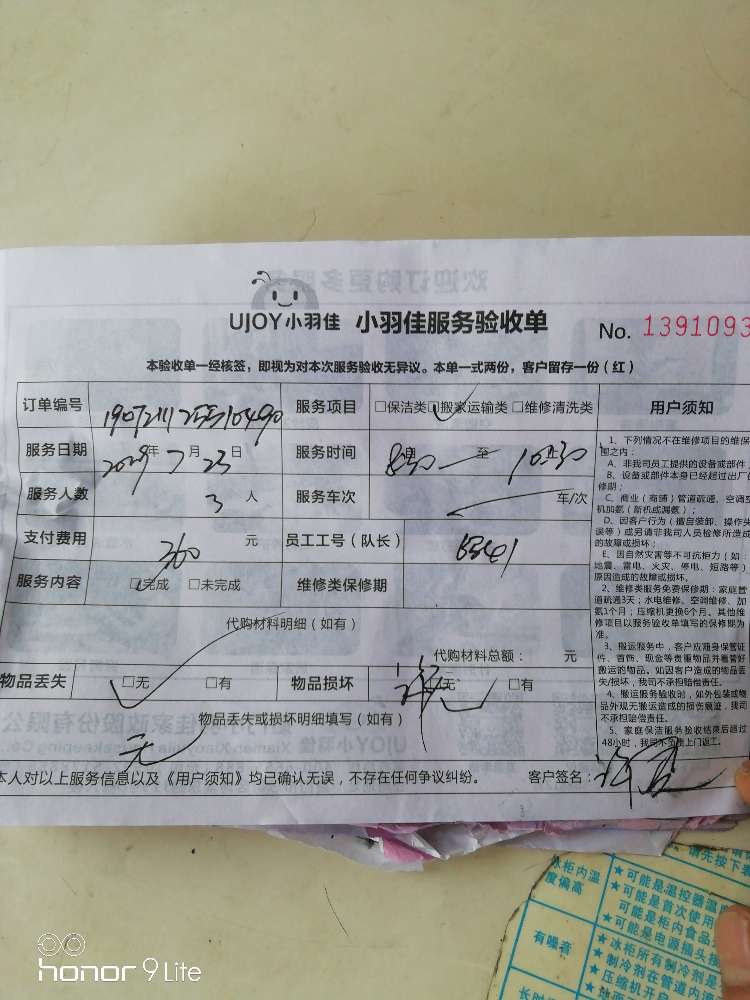 欢迎订购更多服
UJOY小羽佳 小羽佳服务验收单 No. 1391093
本验收单一经核签，即视为对本次服务验收无异议。本单一式两份，客户留存一份（红）
订单编号 服务项目 □保洁类□搬家运输类 □维修清洗类 用户须知
服务日期 年 7 月 23 日 服务时间 8:30 至 10:30
服务人数 3 人 服务车次 车/次
支付费用 260 元 员工工号（队长）
服务内容 □完成 □未完成 维修类保修期
代购材料明细（如有）
代购材料总额： 元
物品丢失 □无 □有 物品损坏 □无 □有
物品丢失或损坏明细填写（如有）
无
本人对以上服务信息以及《用户须知》均已确认无误，不存在任何争议纠纷。 客户签名：
1、下列情况不在维修项目的维保
围之内：
A、非我司员工提供的设备或部件
B、设备或部件本身已经超过出厂
修期；
C、商业（商铺）管道疏通、空调
机加氨（新机或漏氨）；
D、因客户行为（擅自装卸、操作失
误等）或另请非我司人员检修所造成
的故障或损坏；
E、因自然灾害等不可抗拒力（如：
地震、雷电、火灾、停电、短路等）
原因造成的故障或损坏。
2、维修类服务免费保修期：家庭管
道疏通3天；水电维修、空调维修、加
氨1个月；压缩机更换6个月。其他维
修项目以服务验收单填写的保修期为
准。
3、搬运服务中，客户应随身保管证
件、首饰、现金等贵重物品并看管好
搬运的物品。如因客户造成的物品丢
失/损坏，我司不承担赔偿责任。
4、搬运服务验收时，如外包装或物
品外观无搬运造成的损伤痕迹，我司
不承担赔偿责任。
5、家庭保洁服务验收结束后超过
48小时，我司不负责上门返工。
请先按下表
冰柜内温
度偏高
★可能是温控器温度
★可能是首次使用
可能是柜内食品
★可能是电源插头接
有噪音
★冰柜所有制冷剂是
★制冷剂在管道内
★压缩机开
长时间
honor 9 Lite